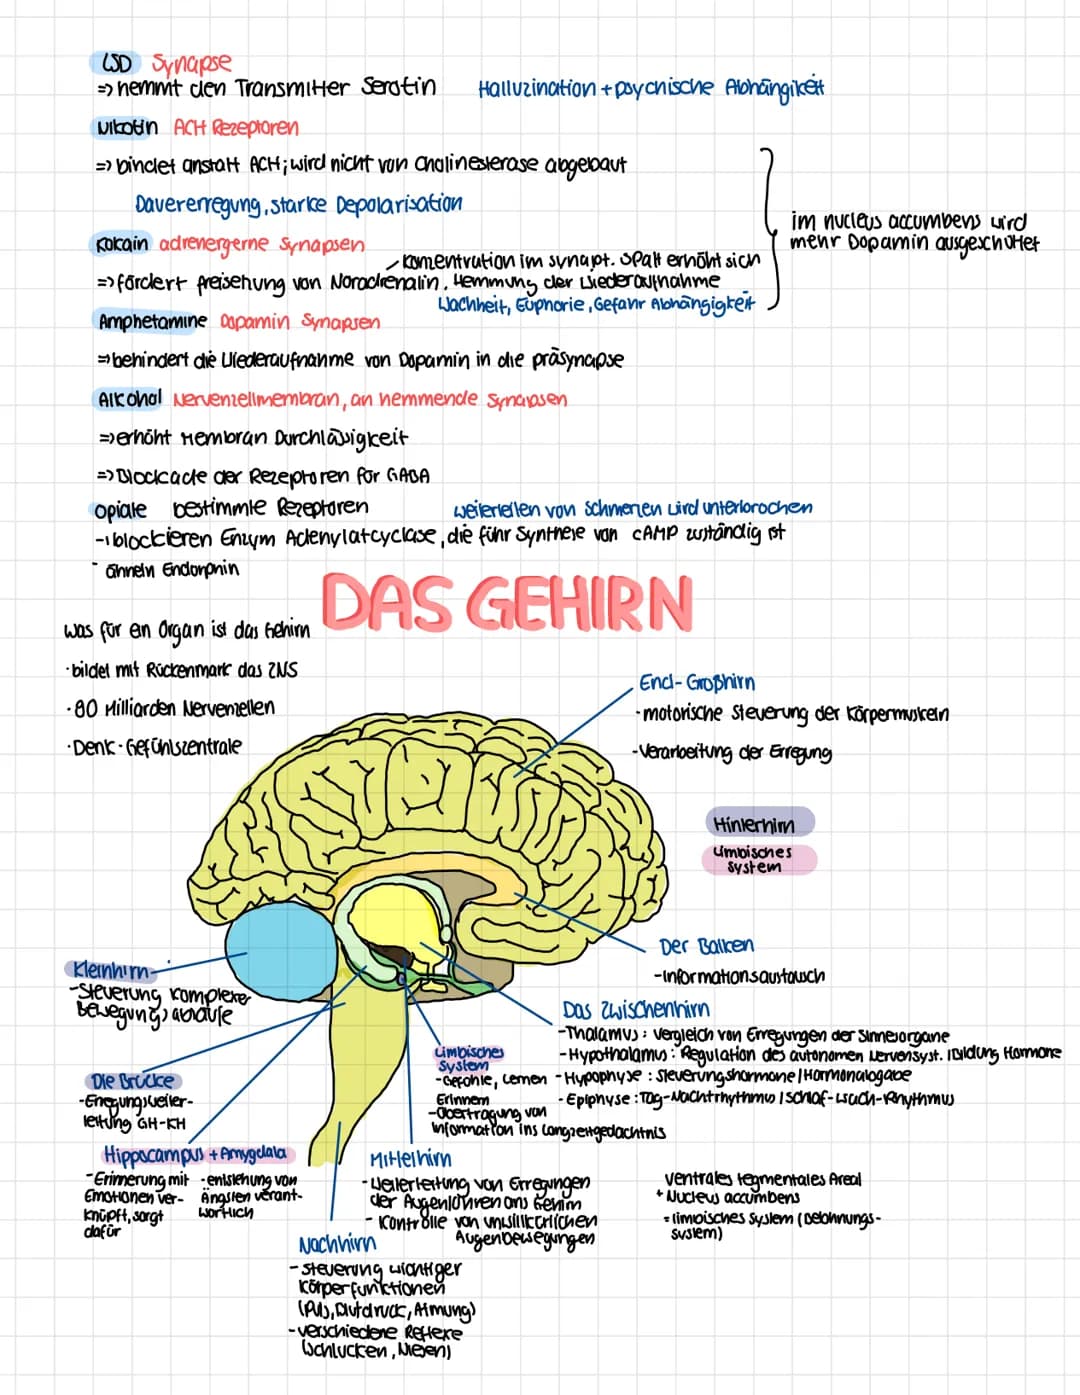 LSD Synapse
=> hemmt den Transmitter Serotin Halluzination + psychische Abhängikeit
Nikotin ACH Rezeptoren
=> bindet anstatt ACH; wird nicht von Cholinesterase abgebaut
Dauererregung, starke Depolarisation
im nucleus accumbens wird
mehr Dopamin ausgeschüttet
Kokain adrenergerne Synapsen
Konzentration im synapt. Spalt erhöht sich
=> fördert freisetzung von Noradrenalin, Hemmung der Wiederaufnahme
Wachheit, Euphorie, Gefahr Abhängigkeit
Amphetamine Dopamin Synapsen
=> behindert die Wiederaufnahme von Dopamin in die präsynapse
Alkohol Nervenzellmembran, an hemmende Synapsen
=> erhöht Membran Durchlässigkeit
=> Blockade der Rezeptoren für GABA
Opiate bestimmte Rezeptoren weiterleiten von Schmerzen wird unterbrochen
- blockieren Enzym Adenylatcyclase, die führ Synthese von cAMP zuständig ist
- ähneln Endorphin
DAS GEHIRN
Was für en Organ ist das Gehirn
· bildet mit Rückenmark das ZNS
· 80 Milliarden Nervenzellen
· Denk - Gefühlszentrale
End- Großhirn
- motorische Steuerung der Körpermuskeln
- Verarbeitung der Erregung
Hinterhirn
Limbisches
System
Der Balken
- Informationsaustausch
Kleinhirn
- Steuerung komplexer
Bewegungsabläufe
Das Zwischenhirn
- Thalamus: Vergleich von Erregungen der Sinnesorgane
- Hypothalamus: Regulation des autonomen Nervensyst. / Bildung Hormone
- Hypophyse: Steuerungshormone / Hormonabgabe
- Epiphyse: Tag-Nachtrhythmus / Schlaf-Wach-Rhythmus
Limbisches
System
- Gefühle, Lernen
Erinnern
- Übertragung von
Information ins Langzeitgedächtnis
Die Brücke
- Erregungsweiter-
leitung GH-KH
Hippocampus + Amygdala
- Erinnerung mit
Emotionen ver-
knüpft, sorgt
dafür
- entstehung von
Ängsten verant-
wortlich
Mittelhirn
- Weiterleitung von Erregungen
der Augen/Ohren ans Gehirn
- Kontrolle von unwillkürlichen
Augenbewegungen
ventrales tegmentales Areal
+ Nucleus accumbens
= limbisches System (Belohnungs-
system)
Nachhirn
- Steuerung wichtiger
Körperfunktionen
(Puls, Blutdruck, Atmung)
- verschiedene Reflexe
(Schlucken, Niesen)